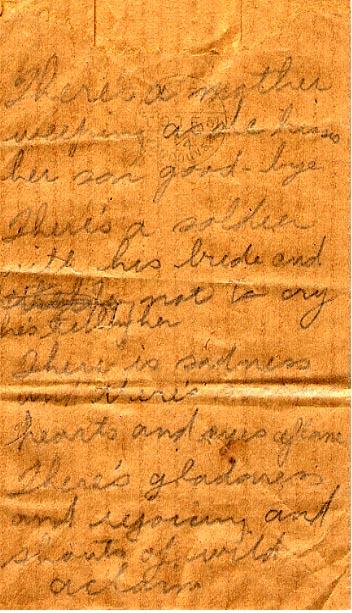 There's a mother
weeping as she kisses
her son good-bye
There's a soldier
with his bride and
not to cry
he's telling her
There is sadness
and there's
hearts and eyes aflame
There's gladness
and rejoicing and
shouts of wild
aclaim